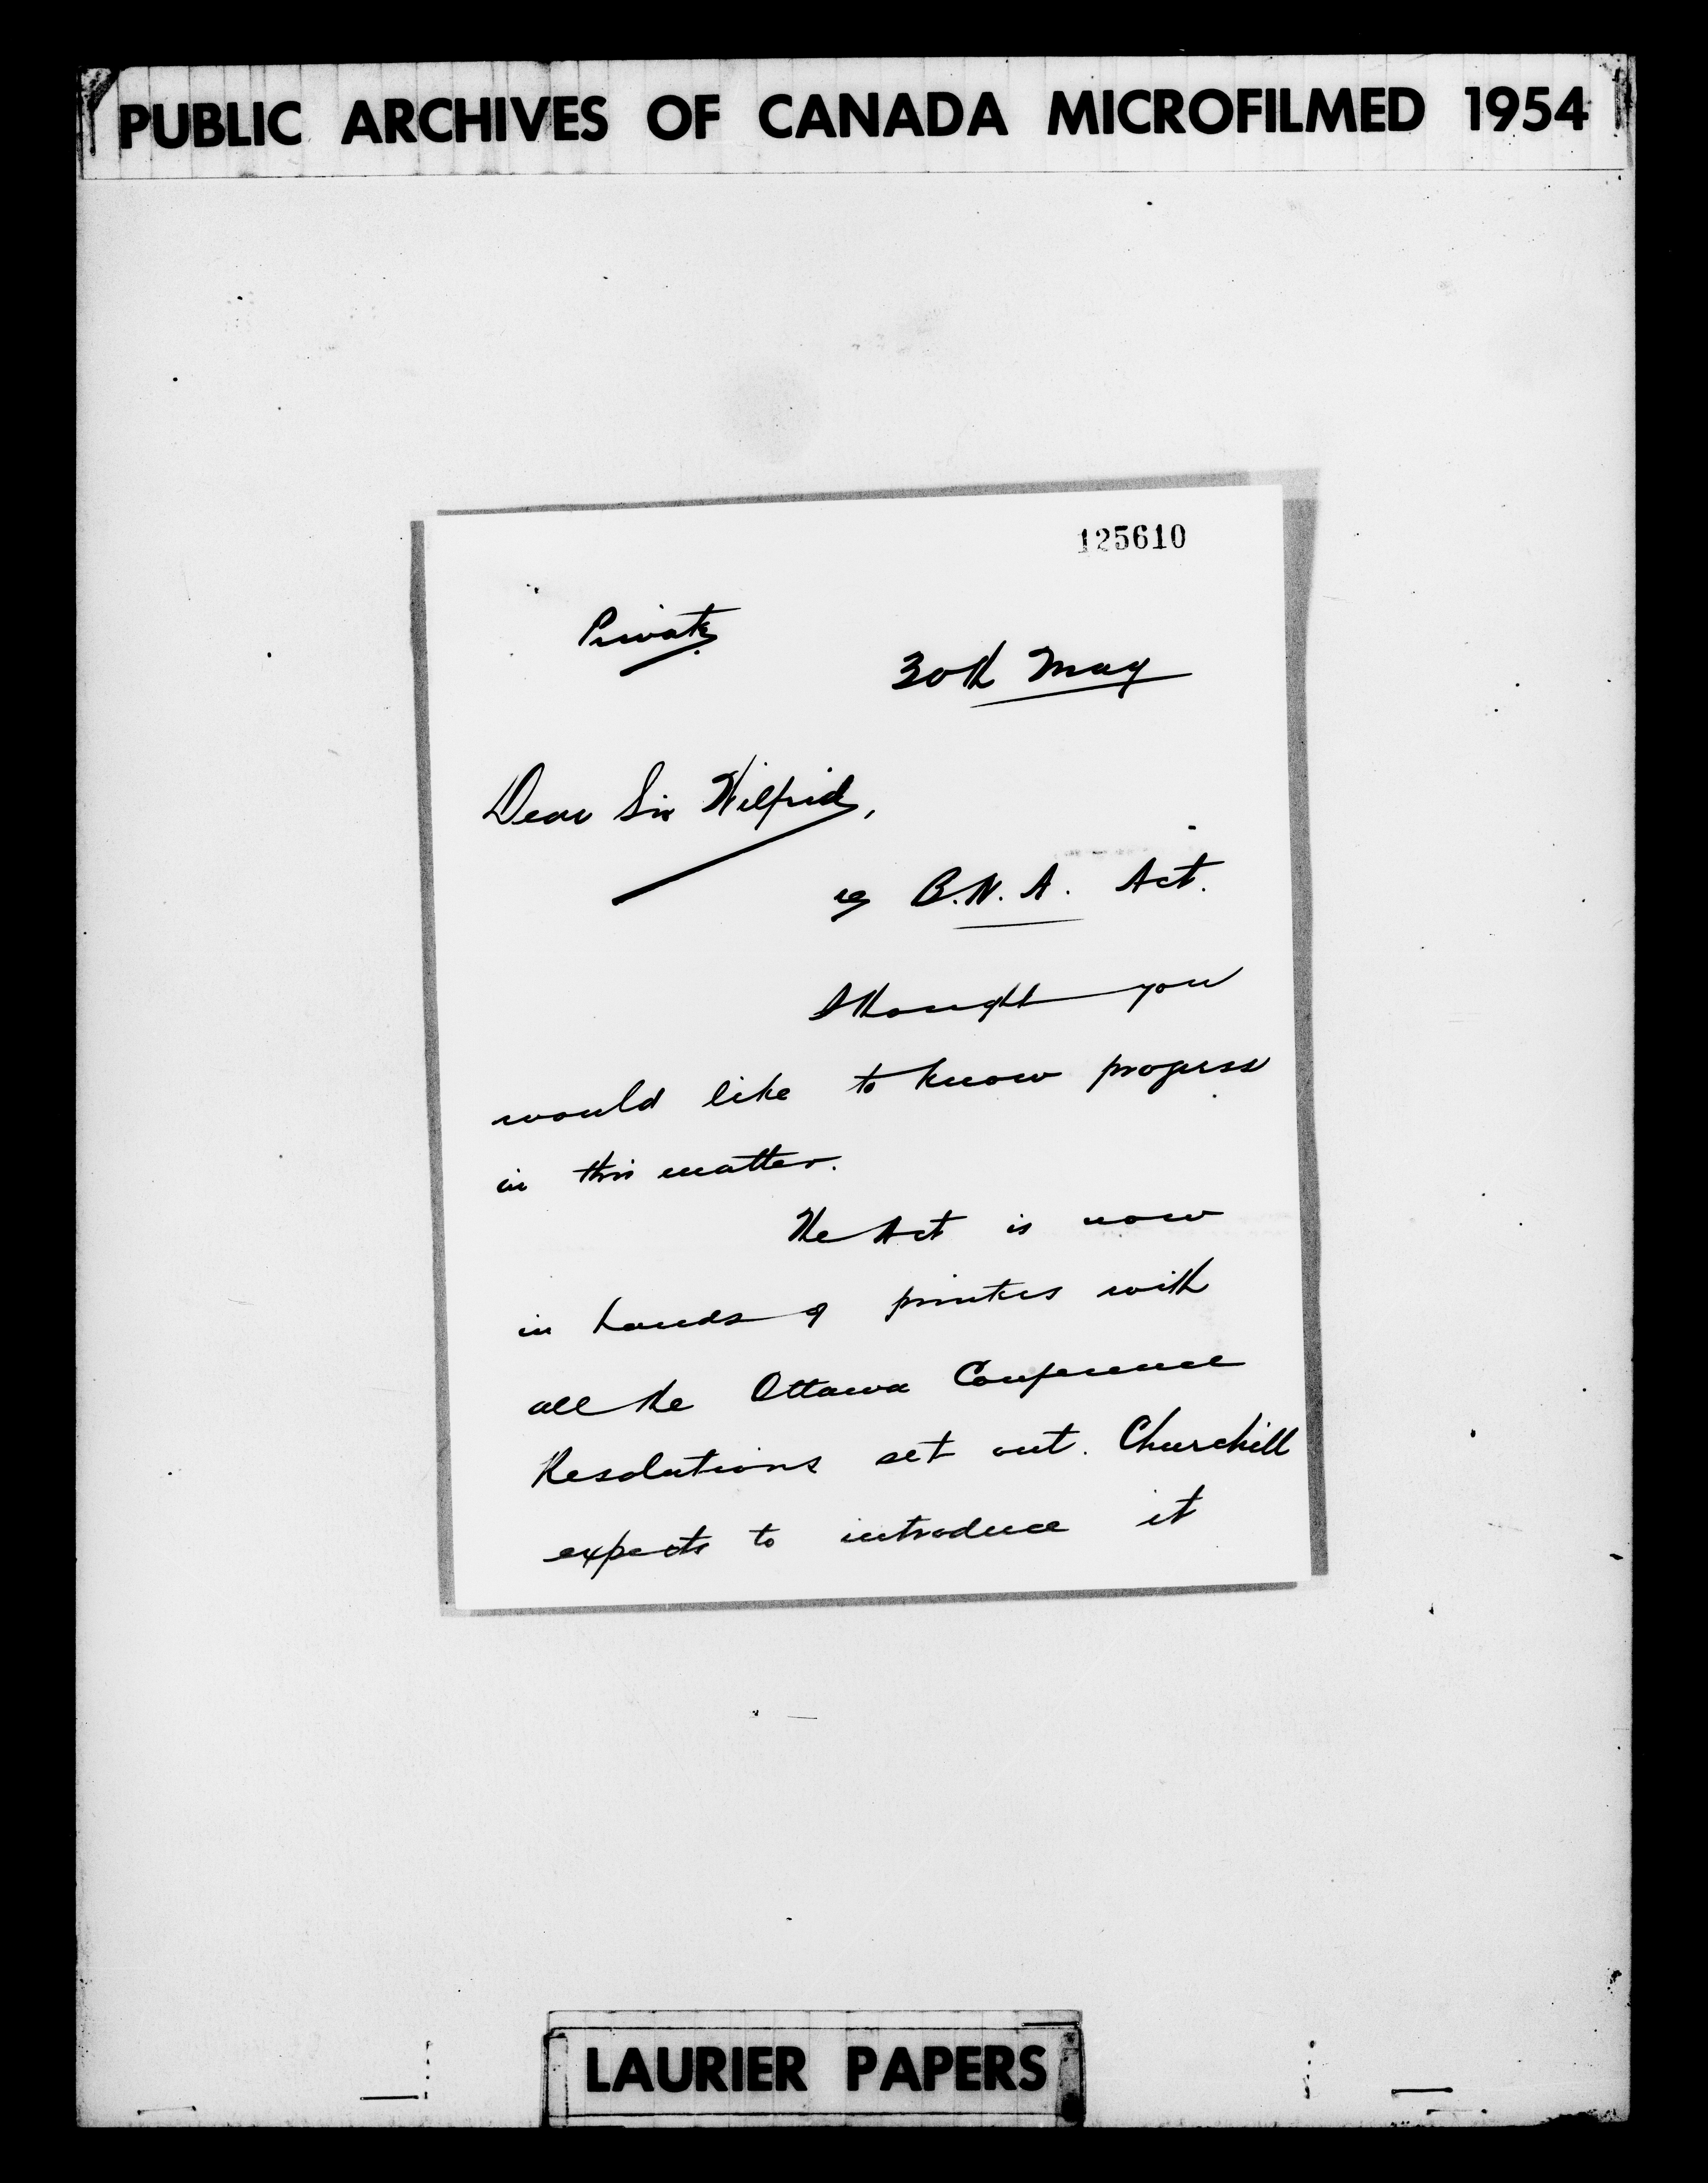 PUBLIC ARCHIVES OF CANADA MICROFILMED 1954
125610
Private
30th May
Dear Sir Wilfrid,
re B.N.A. Act.
I thought you
would like to know progress
in this matter.
The Act is now
in hands of printers with
all the Ottawa Conference
Resolutions set out. Churchill
expects to introduce it
LAURIER PAPERS